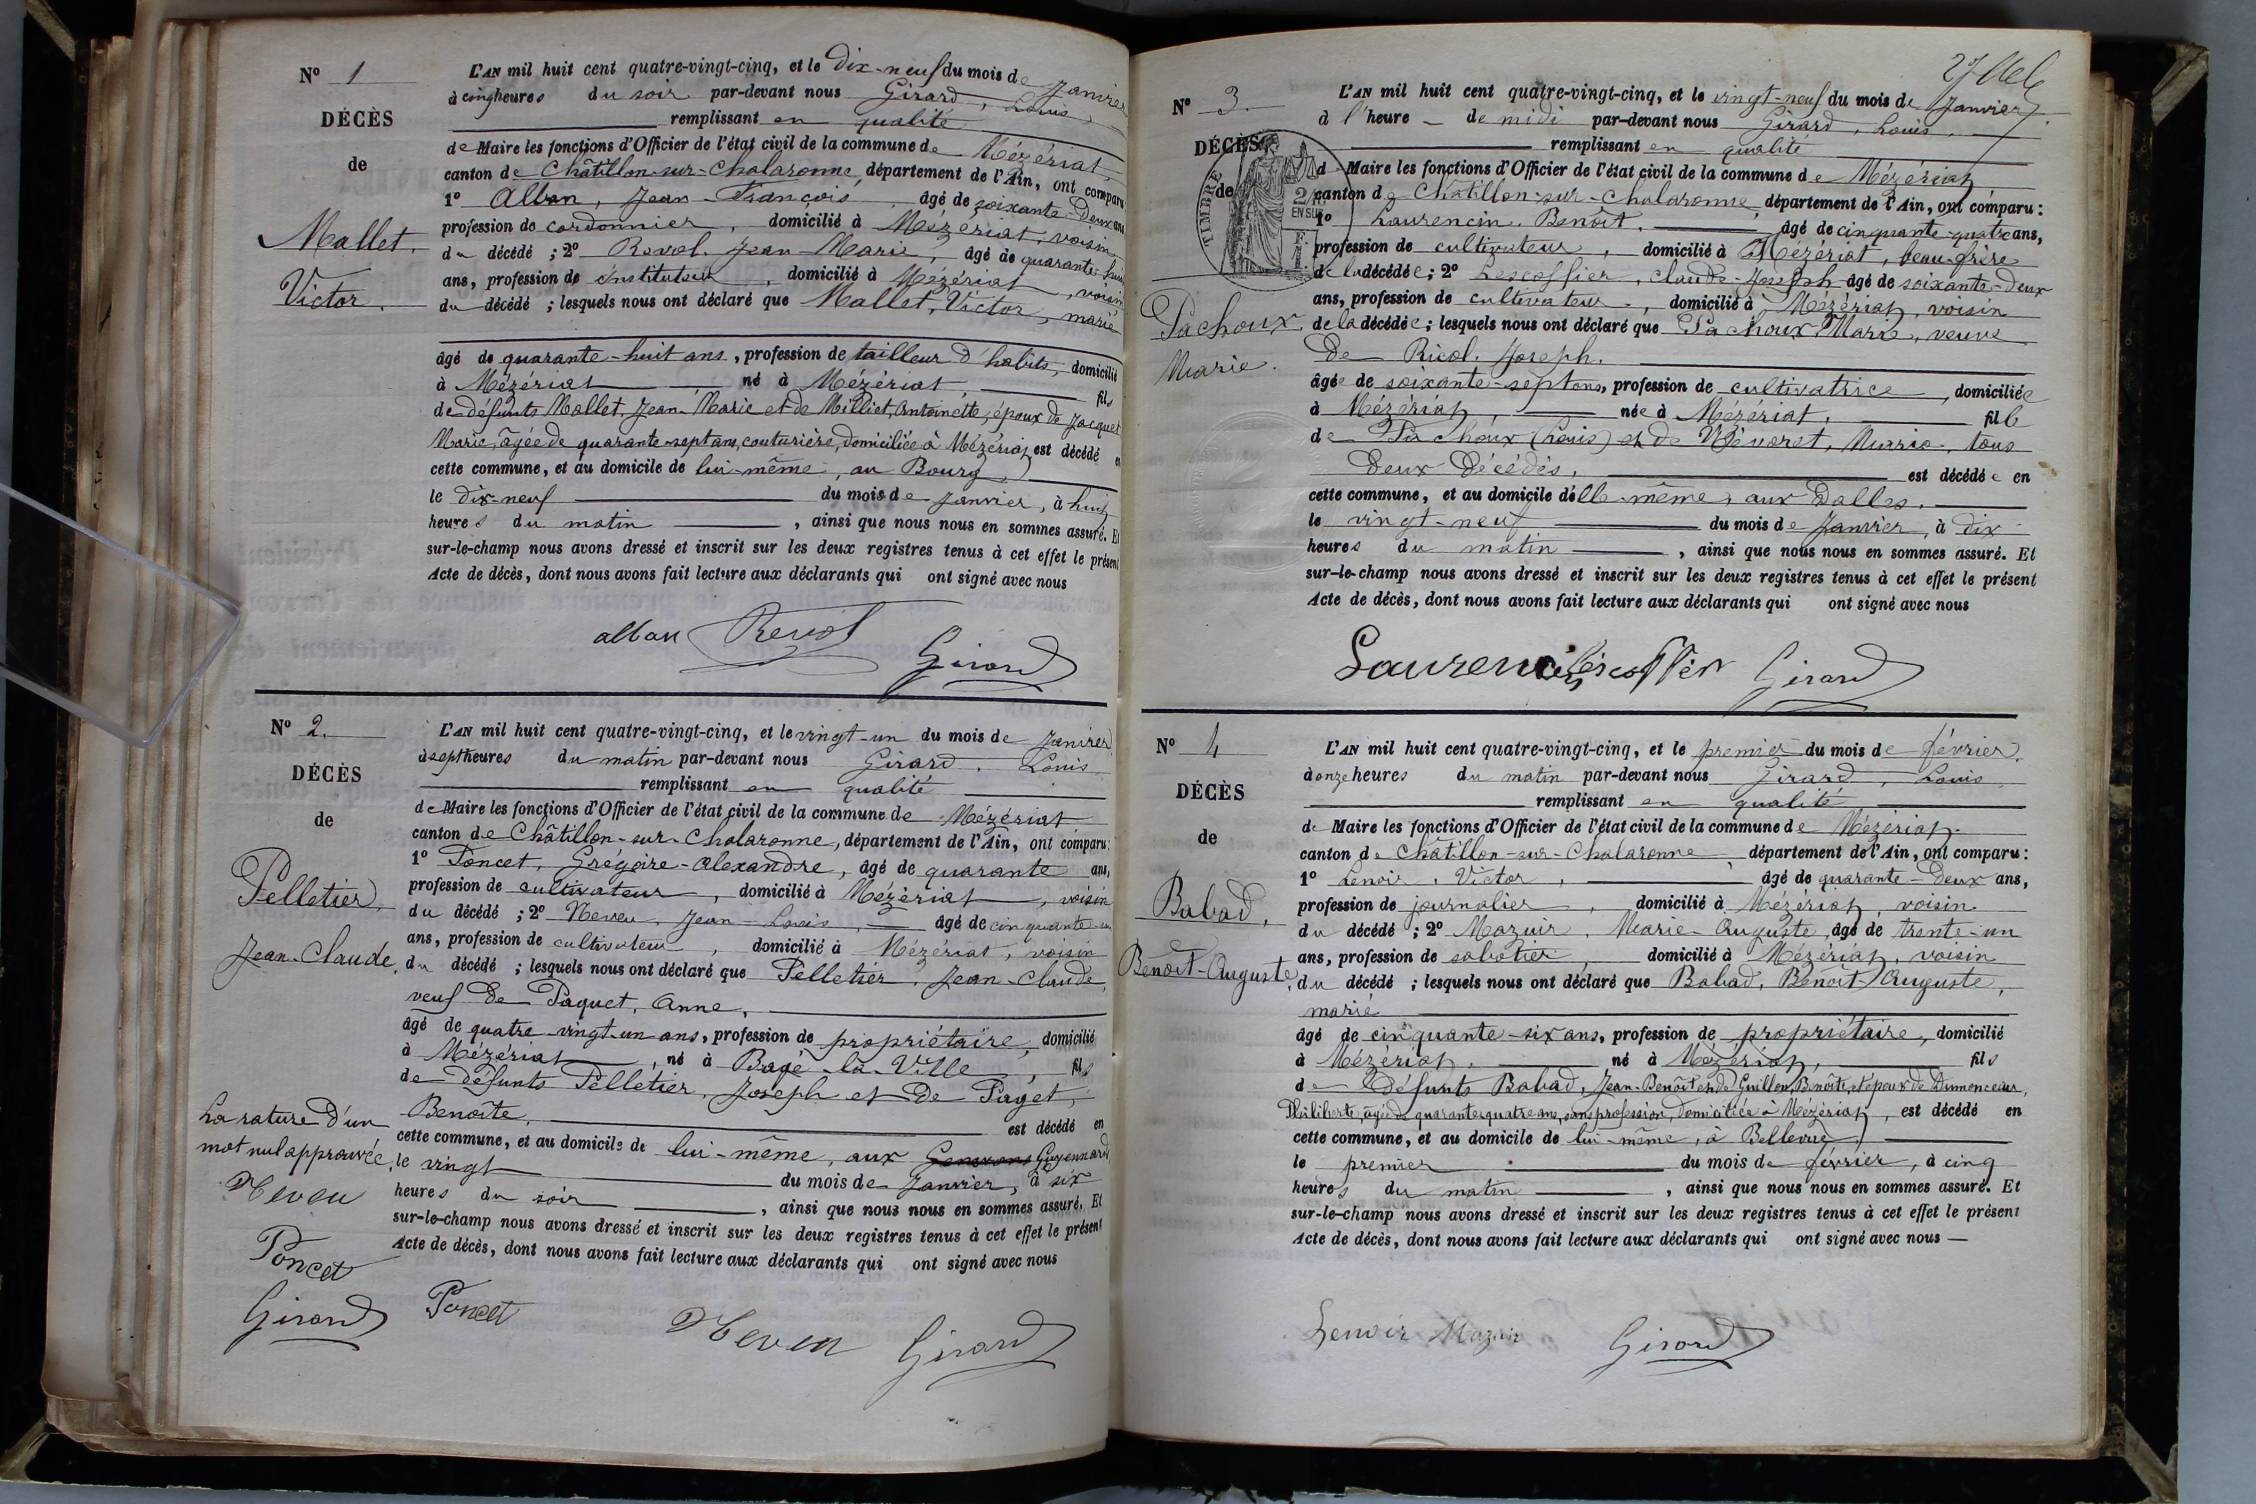 N° 1
DÉCÈS
de
Mallet,
Victor.
L'AN mil huit cent quatre-vingt-cinq, et le dix-neuf du mois de Janvier
à cinq heures du soir par-devant nous Girard, Louis,
remplissant en qualité
de Maire les fonctions d'Officier de l'état civil de la commune de Mézériat,
canton de Châtillon-sur-Chalaronne, département de l'Ain, ont comparu
1° Alban, Jean-François, âgé de soixante-deux ans
profession de cordonnier, domicilié à Mézériat, voisin
du décédé ; 2° Revol, Jean-Marie, âgé de quarante-huit
ans, profession de instituteur, domicilié à Mézériat, voisin
du décédé ; lesquels nous ont déclaré que Mallet, Victor, marié
âgé de quarante-huit ans, profession de tailleur d'habits, domicilié
à Mézériat né à Mézériat, fils
de défunts Mallet, Jean-Marie et de Milliet, Antoinette, époux de Jacquet
Marie, âgée de quarante-sept ans, couturière, domiciliée à Mézériat est décédé en
cette commune, et au domicile de lui-même, au Bourg,
le dix-neuf du mois de Janvier, à huit
heures du matin, ainsi que nous nous en sommes assuré. Et
sur-le-champ nous avons dressé et inscrit sur les deux registres tenus à cet effet le présent
Acte de décès, dont nous avons fait lecture aux déclarants qui ont signé avec nous
alban Revol Girard
N° 2.
DÉCÈS
de
Pelletier,
Jean-Claude,
La rature d'un
mot nul approuvée,
Neveu
Poncet
Girard
L'AN mil huit cent quatre-vingt-cinq, et le vingt-un du mois de Janvier
à sept heures du matin par-devant nous Girard, Louis,
remplissant en qualité
de Maire les fonctions d'Officier de l'état civil de la commune de Mézériat
canton de Châtillon-sur-Chalaronne, département de l'Ain, ont comparu :
1° Poncet, Grégoire-Alexandre, âgé de quarante ans,
profession de cultivateur, domicilié à Mézériat, voisin
du décédé ; 2° Neveu, Jean-Louis, âgé de cinquante-un
ans, profession de cultivateur, domicilié à Mézériat, voisin
du décédé ; lesquels nous ont déclaré que Pelletier, Jean-Claude,
veuf de Paquet, Anne,
âgé de quatre-vingt-un ans, profession de propriétaire, domicilié
à Mézériat, né à Bagé-la-Ville, fils
de défunts Pelletier, Joseph et de Paget,
Benoîte, est décédé en
cette commune, et au domicile de lui-même, aux Guyennards
le vingt du mois de Janvier, à six
heures du soir, ainsi que nous nous en sommes assuré. Et
sur-le-champ nous avons dressé et inscrit sur les deux registres tenus à cet effet le présent
Acte de décès, dont nous avons fait lecture aux déclarants qui ont signé avec nous
Poncet Neveu Girard
N° 3.
DÉCÈS
de
TIMBRE
2/10
EN SUS
Pachoux,
Marie.
L'AN mil huit cent quatre-vingt-cinq, et le vingt-neuf du mois de Janvier
à l'heure de midi par-devant nous Girard, Louis,
remplissant en qualité
d Maire les fonctions d'Officier de l'état civil de la commune de Mézériat
canton de Châtillon-sur-Chalaronne, département de l'Ain, ont comparu :
1° Laurencin, Benoît, âgé de cinquante-quatre ans,
profession de cultivateur, domicilié à Mézériat, beau-frère
de la décédée ; 2° Lescoffier, Claude-Joseph âgé de soixante-deux
ans, profession de cultivateur, domicilié à Mézériat, voisin
de la décédée ; lesquels nous ont déclaré que Pachoux Marie, veuve
de Ricol, Joseph.
âgée de soixante-sept ans, profession de cultivatrice, domiciliée
à Mézériat, née à Mézériat, fille
de Pachoux (Louis) et de Névoret, Marie, tous
deux décédés. est décédée en
cette commune, et au domicile d'elle-même, aux Dalles.
le vingt-neuf du mois de Janvier, à dix
heures du matin, ainsi que nous nous en sommes assuré. Et
sur-le-champ nous avons dressé et inscrit sur les deux registres tenus à cet effet le présent
Acte de décès, dont nous avons fait lecture aux déclarants qui ont signé avec nous
Laurencin Lescoffier Girard
N° 4
DÉCÈS
de
Babad,
Benoît-Auguste,
L'AN mil huit cent quatre-vingt-cinq, et le premier du mois de février,
à onze heures du matin par-devant nous Girard, Louis
remplissant en qualité
de Maire les fonctions d'Officier de l'état civil de la commune de Mézériat.
canton de Châtillon-sur-Chalaronne département de l'Ain, ont comparu :
1° Lenoir, Victor, âgé de quarante-deux ans,
profession de journalier, domicilié à Mézériat, voisin
du décédé ; 2° Mazuir, Marie-Auguste, âgé de trente-un
ans, profession de sabotier, domicilié à Mézériat, voisin
du décédé ; lesquels nous ont déclaré que Babad, Benoît-Auguste,
marié
âgé de cinquante-six ans, profession de propriétaire, domicilié
à Mézériat, né à Mézériat, fils
de défunts Babad, Jean-Benoît et de Guillon, Benoîte, et époux de Dumonceau,
Philiberte, âgée de quarante-quatre ans, sans profession, domiciliée à Mézériat, est décédé en
cette commune, et au domicile de lui-même, à Bellevue,
le premier du mois de février, à cinq
heures du matin, ainsi que nous nous en sommes assuré. Et
sur-le-champ nous avons dressé et inscrit sur les deux registres tenus à cet effet le présent
Acte de décès, dont nous avons fait lecture aux déclarants qui ont signé avec nous —
Lenoir Mazuir Girard